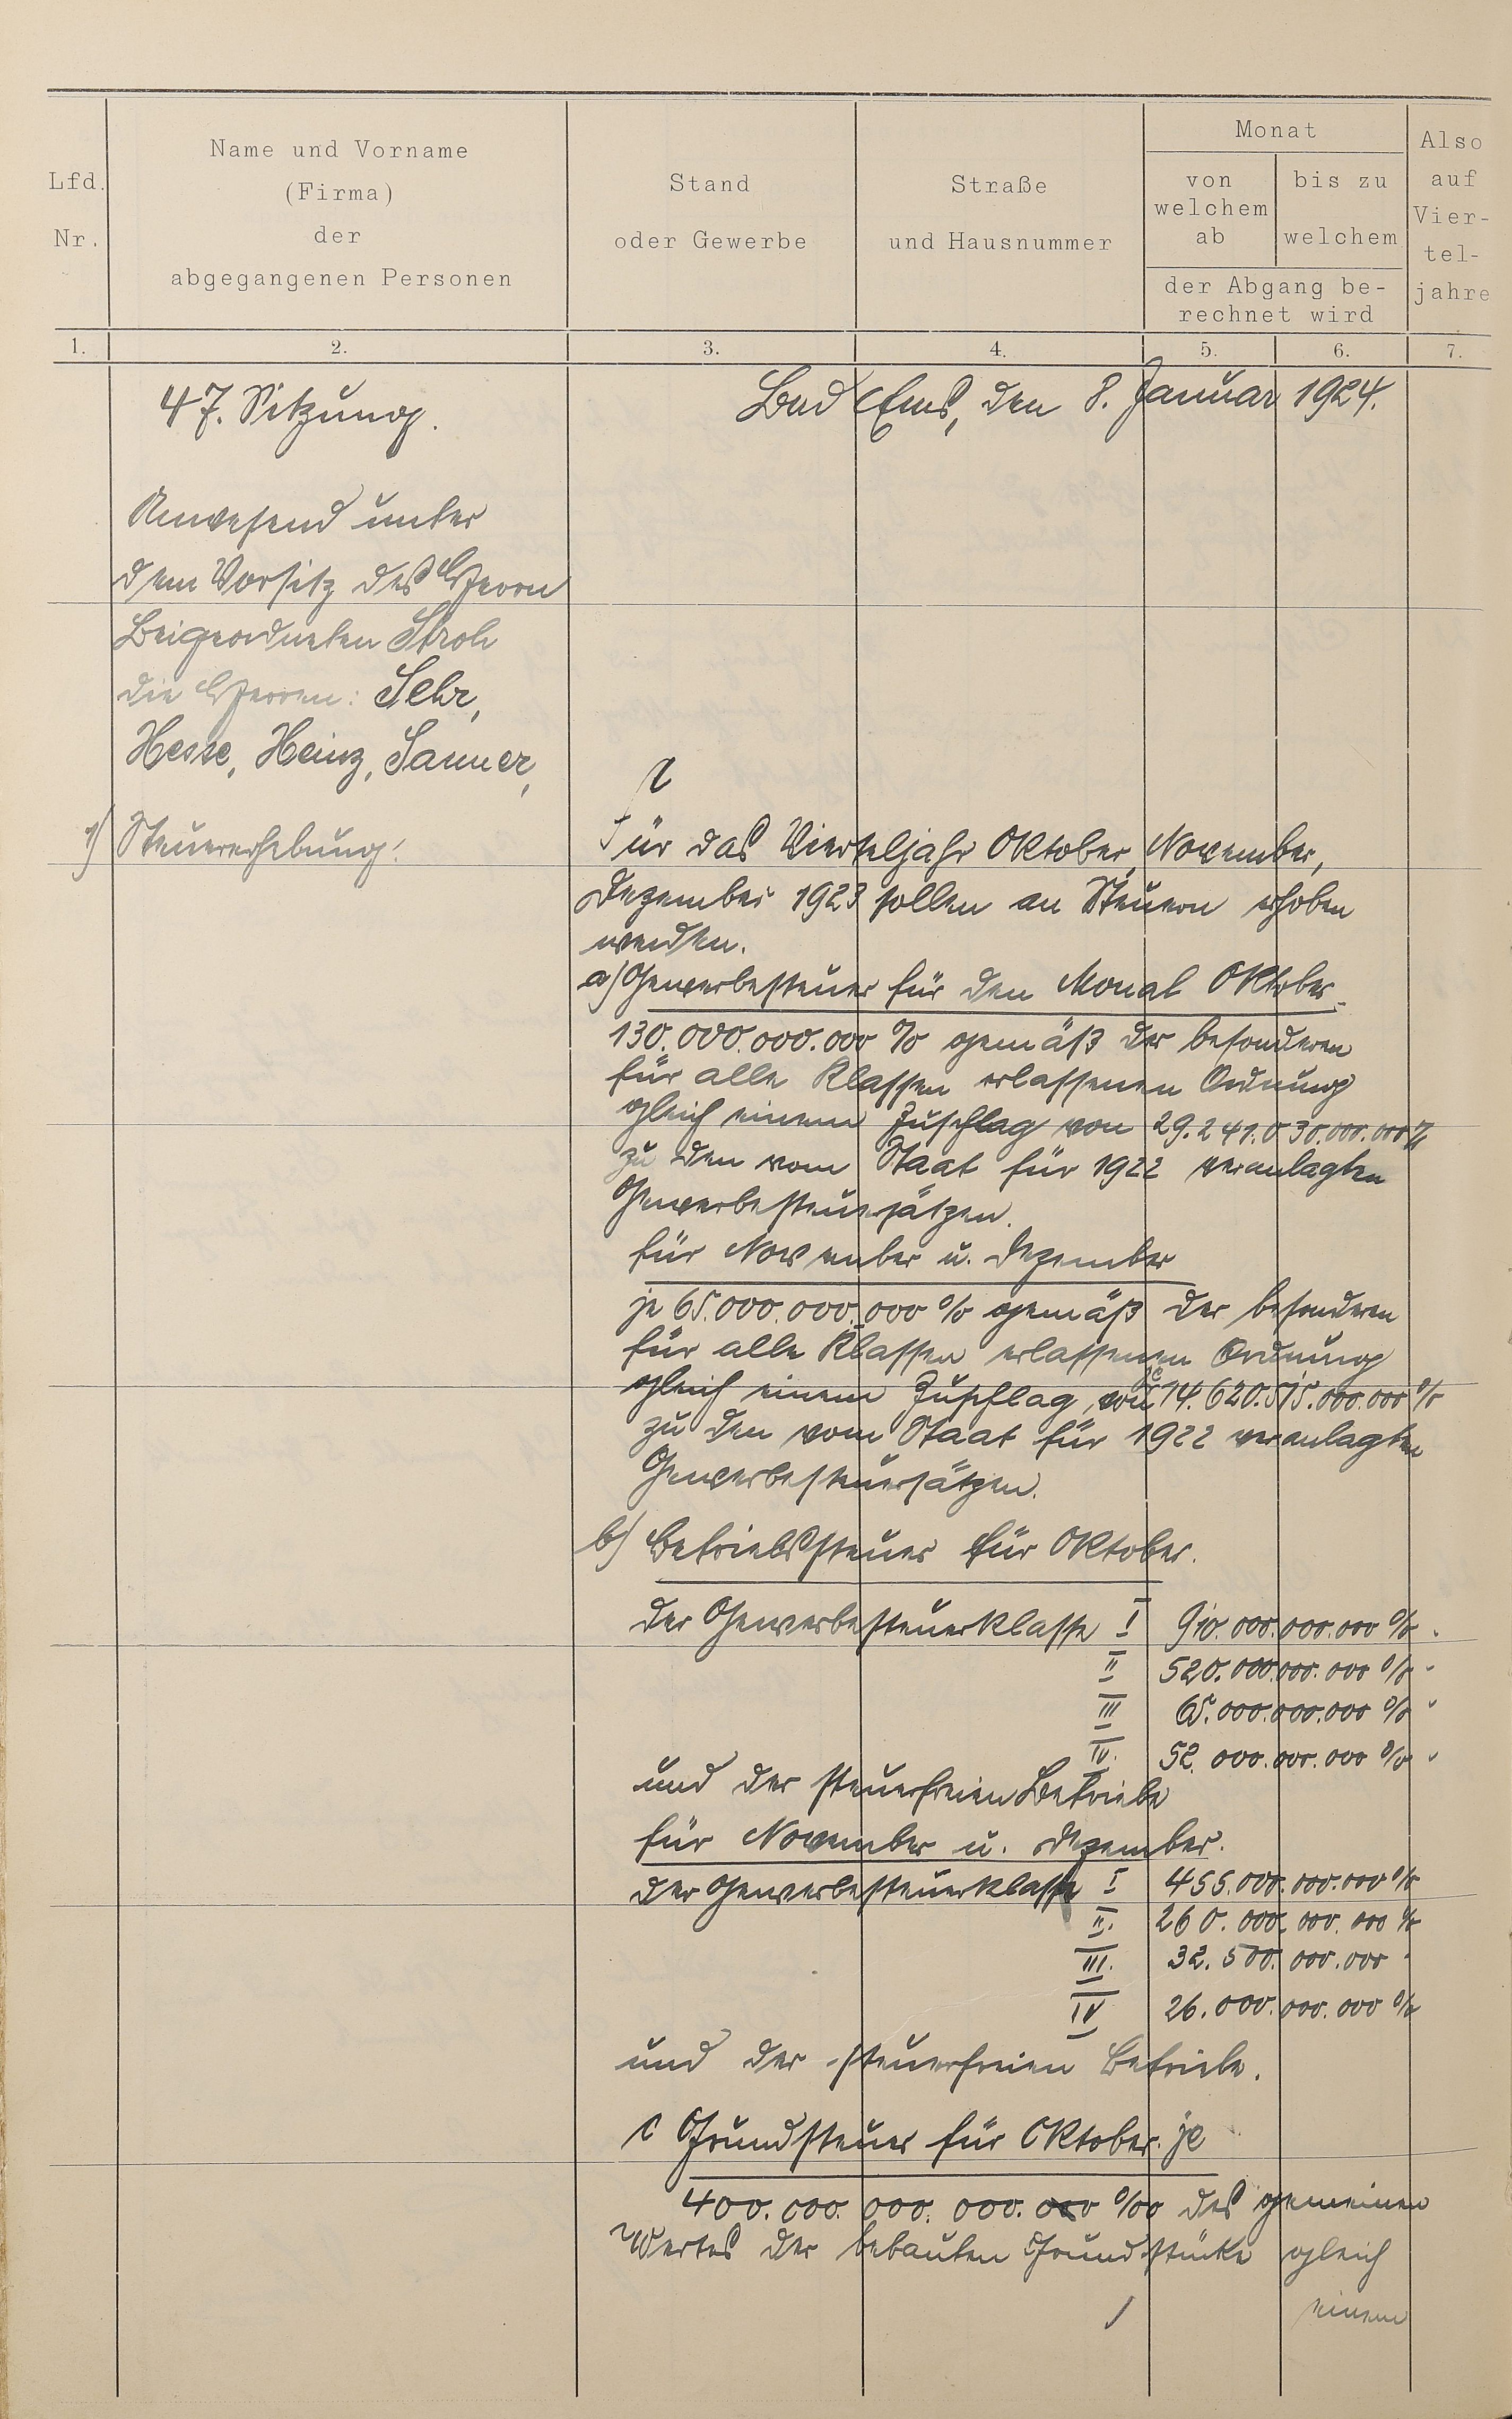 Lfd. Nr.
Name und Vorname
(Firma)
der
abgegangenen Personen
Stand
oder Gewerbe
Straße
und Hausnummer
Monat
von
welchem
ab
bis zu
welchem
der Abgang be-
rechnet wird
Also
auf
Vier-
tel-
jahre
1. 2. 3. 4. 5. 6. 7.
47. Sitzung.
Bad Ems, den 8. Januar 1924.
Anwesend unter
dem Vorsitz des Herrn
Beigeordneten Stroh
die Herren: Sehr,
Hesse, Heinz, Sanner,
1) Steuererhebung.
Für das Vierteljahr Oktober, November,
Dezember 1923 sollen an Steuern erhoben
werden.
a) Gewerbesteuer für den Monat Oktober
130.000.000.000 % gemäß der besonderen
für alle Klassen erlassenen Ordnung
gleich einem Zuschlag von 29.241.030.000.000 %
zu den vom Staat für 1922 veranlagten
Gewerbesteuersätzen.
für November u. Dezember
je 65.000.000.000 % gemäß der besonderen
für alle Klassen erlassenen Ordnung
gleich einem Zuschlag, von je 14.620.515.000.000 %
zu den vom Staat für 1922 veranlagten
Gewerbesteuersätzen.
b) Betriebssteuer für Oktober.
der Gewerbesteuerklasse I 910.000.000.000 %
II 520.000.000.000 %
III 65.000.000.000 %
IV. 52.000.000.000 %
und der steuerfreien Betriebe
für November u. Dezember.
der Gewerbesteuerklasse I 455.000.000.000 %
II. 260.000.000.000 %
III. 32.500.000.000 "
IV 26.000.000.000 %
und der steuerfreien Betriebe.
c Grundsteuer für Oktober je
400.000.000.000.000 ‰ des gemeinen
Wertes der bebauten Grundstücke gleich
einem